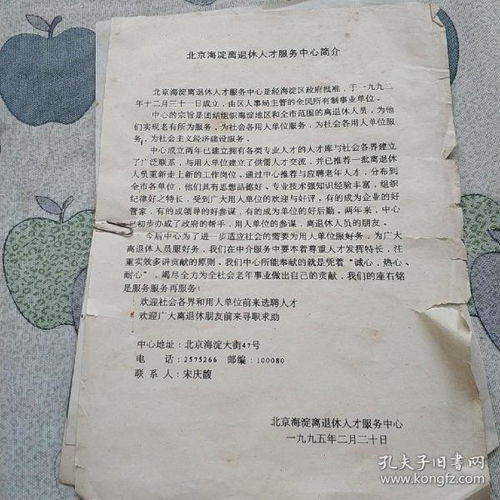 北京海淀离退休人才服务中心简介
北京海淀离退休人才服务中心是经海淀区政府批准，于一九九二
年十二月三十一日成立，由区人事局主管的全民所有制事业单位。
中心的宗旨是团结组织海淀地区和全市范围的离退休人员，为他
们实现老有所为服务，为社会各用人单位服务，为社会各用人单位服
务，为社会主义经济建设服务。
中心成立两年已建立拥有各类专业人才的人才库与社会各界建立
了广泛联系，与用人单位建立了供需人才交流，并已推荐一批离退休
人员重新走上新的工作岗位，通过中心推荐与应聘老年人才，分布到
全市各单位，他们具有思想品德好、专业技术强知识经验丰富，组织
纪律好之特长，受到广大用人单位的欢迎与好评，有的成为企业的好
管家，有的成领导的好参谋，有的成为单位的好后勤，两年来，中心
已初步办成了政府的帮手，用人单位的参谋，离退休人员的朋友。
今后中心为了进一步适应社会的需要为用人单位服好务，为广大
离退休人员服好务，我们在中介服务中要本着尊重人才发挥特长，注
重实效多讲贡献的原则，我们中心所能奉献的就是凭着“诚心，热心、
耐心”，竭尽全力为全社会老年事业做出自己的贡献，我们的座右铭
是服务服务再服务！
欢迎社会各界和用人单位前来选聘人才
欢迎广大离退休朋友前来寻职求助
中心地址：北京海淀大街47号
电　话：2575266　邮编：100080
联 系 人：宋庆馥
北京海淀离退休人才服务中心
一九九五年二月二十日
孔夫子旧书网
www.kongfz.com